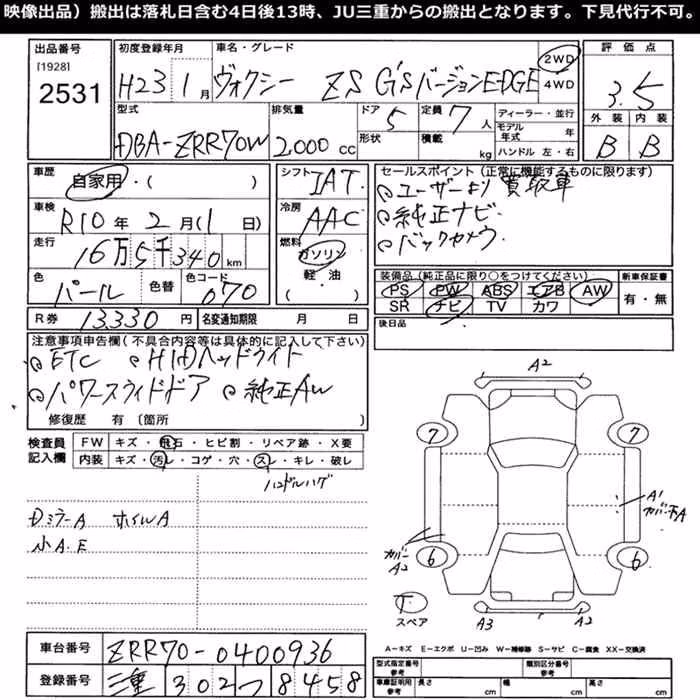 映像出品）搬出は落札日含む4日後13時、JU三重からの搬出となります。下見代行不可。
出品番号 初度登録年月 車名・グレード 評価点
[1928]
2531 H23 1月 ヴォクシー ZS G'SバージョンEDGE 2WD 4WD 3.5
型式 排気量 ドア 5 定員 7人 ディーラー・並行 外装 内装
DBA-ZRR70W 2,000cc 形状 積載 kg モデル年式 年 B B
ハンドル 左・右
車歴 自家用・( ) シフト IAT セールスポイント（正常に機能するものに限ります）
ユーザーより買取車
車検 R10年2月(1日) 冷房 AAC 純正ナビ
走行 16万5千340km 燃料 ガソリン バックカメラ
軽・油
・( )
色 パール 色替 色コード 070 装備品（純正品に限り○をつけてください） 新車保証書
PS PW ABS エアB AW 有・無
SR ナビ TV カワ
R券 13330円 名変通知期限 月 日 後日品
注意事項申告欄（不具合内容等は具体的に記入して下さい）
ETC HIDヘッドライト
パワースライドドア 純正AW
修復歴 有 〔箇所 〕
検査員記入欄 FW キズ・飛石・ヒビ割・リペア跡・X要
内装 キズ・汚レ・コゲ・穴・スレ・キレ・破レ
ハンドルハゲ
DミラーA ホイルA
小A.E
A2
7 7
A1
カバー A2
6 6
T
スペア
A3 A2
A－キズ E－エクボ U－凹み W－補修跡 S－サビ C－腐食 XX－交換済
車台番号 ZRR70-0400936 型式指定番号 参考 類別区分番号 参考
登録番号 三重 302 つ 8458 車庫証明用参考 長さ cm 幅 cm 高さ cm